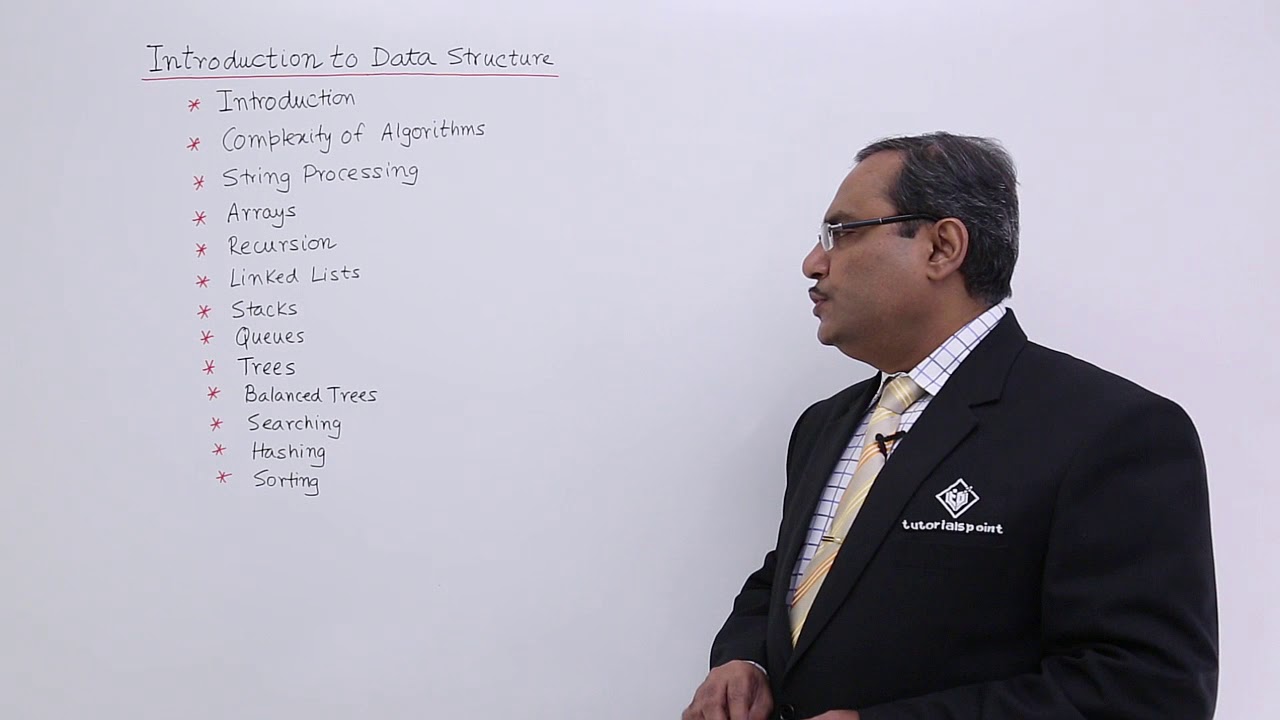 Introduction to Data Structure
* Introduction
* Complexity of Algorithms
* String Processing
* Arrays
* Recursion
* Linked Lists
* Stacks
* Queues
* Trees
* Balanced Trees
* Searching
* Hashing
* Sorting
tutorialspoint